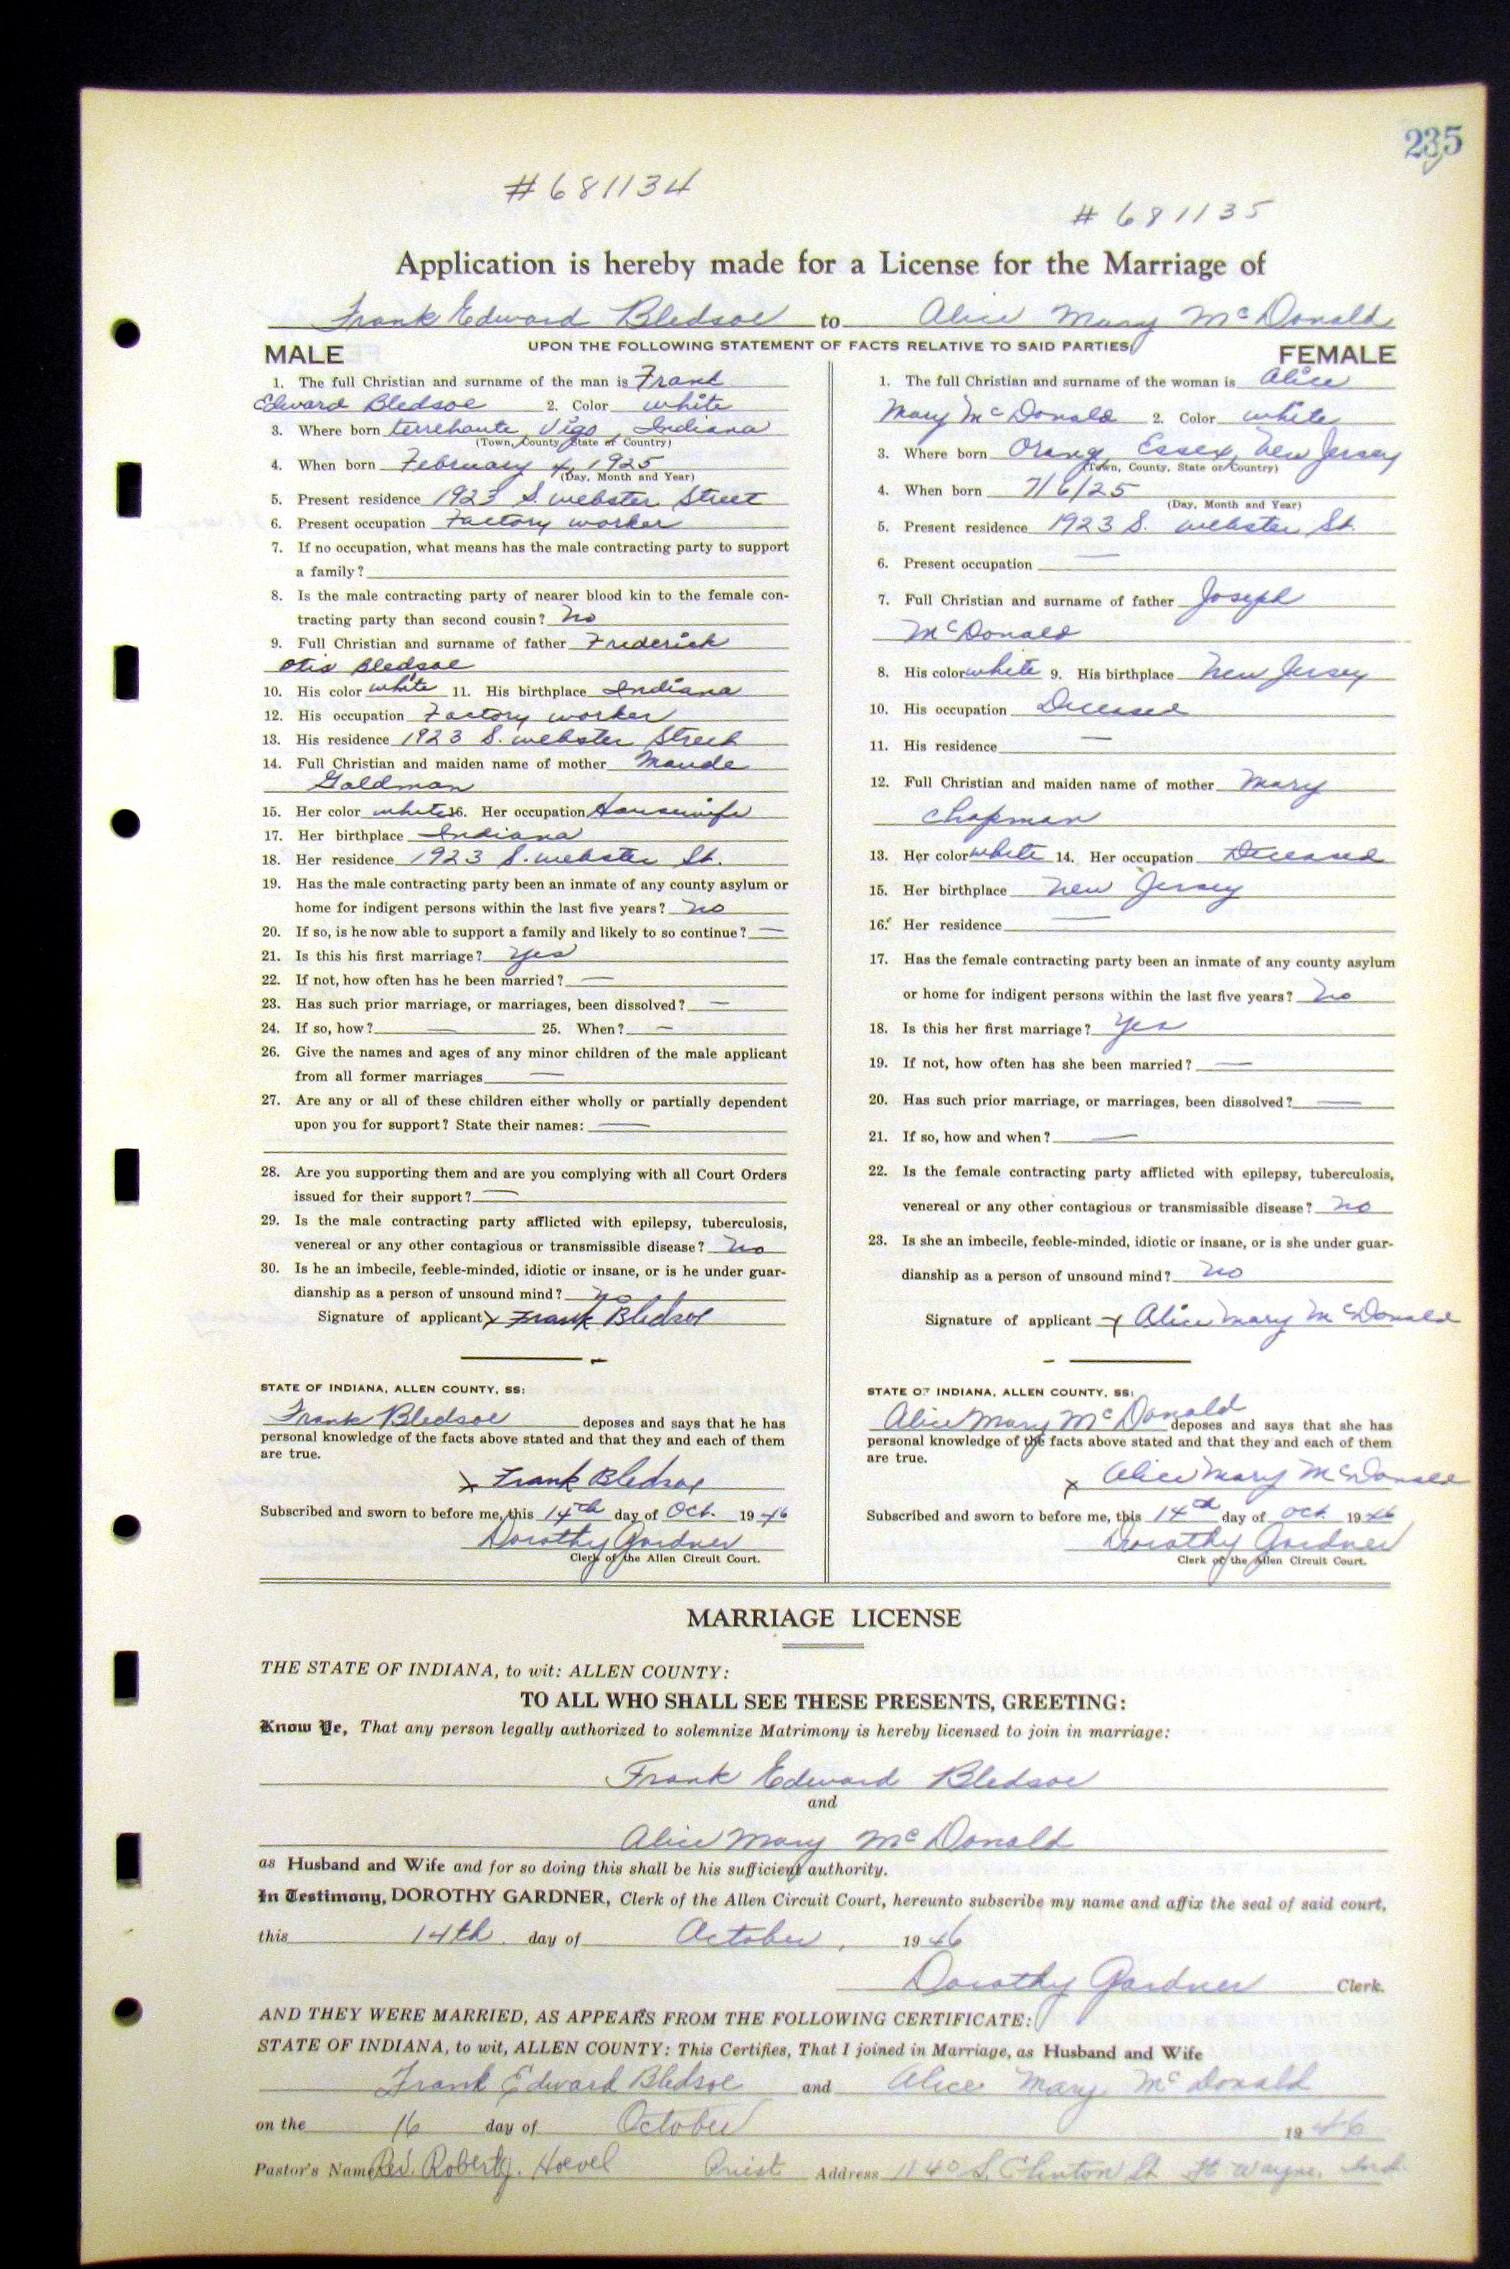 235
#681134
#681135
Application is hereby made for a License for the Marriage of
Frank Edward Bledsoe to Alice Mary McDonald
UPON THE FOLLOWING STATEMENT OF FACTS RELATIVE TO SAID PARTIES:
MALE
1. The full Christian and surname of the man is Frank
Edward Bledsoe 2. Color white
3. Where born terrehaute Vigo, Indiana
(Town, County, State or Country)
4. When born February 4, 1925
(Day, Month and Year)
5. Present residence 1923 S. webster Street
6. Present occupation Factory worker
7. If no occupation, what means has the male contracting party to support
a family?
8. Is the male contracting party of nearer blood kin to the female con-
tracting party than second cousin? No
9. Full Christian and surname of father Frederick
Otis Bledsoe
10. His color white 11. His birthplace Indiana
12. His occupation Factory worker
13. His residence 1923 S. webster Street
14. Full Christian and maiden name of mother Maude
Goldman
15. Her color white 16. Her occupation Housewife
17. Her birthplace Indiana
18. Her residence 1923 S. webster St.
19. Has the male contracting party been an inmate of any county asylum or
home for indigent persons within the last five years? No
20. If so, is he now able to support a family and likely to so continue? —
21. Is this his first marriage? Yes
22. If not, how often has he been married? —
23. Has such prior marriage, or marriages, been dissolved? —
24. If so, how? — 25. When? —
26. Give the names and ages of any minor children of the male applicant
from all former marriages —
27. Are any or all of these children either wholly or partially dependent
upon you for support? State their names: —
28. Are you supporting them and are you complying with all Court Orders
issued for their support? —
29. Is the male contracting party afflicted with epilepsy, tuberculosis,
venereal or any other contagious or transmissible disease? No
30. Is he an imbecile, feeble-minded, idiotic or insane, or is he under guar-
dianship as a person of unsound mind? No
Signature of applicant x Frank Bledsoe
STATE OF INDIANA, ALLEN COUNTY, SS:
Frank Bledsoe deposes and says that he has
personal knowledge of the facts above stated and that they and each of them
are true.
x Frank Bledsoe
Subscribed and sworn to before me, this 14th day of Oct. 1946
Dorothy Gardner
Clerk of the Allen Circuit Court.
FEMALE
1. The full Christian and surname of the woman is Alice
Mary McDonald 2. Color white
3. Where born Orange, Essex, New Jersey
(Town, County, State or Country)
4. When born 7/6/25
(Day, Month and Year)
5. Present residence 1923 S. webster St.
6. Present occupation —
7. Full Christian and surname of father Joseph
McDonald
8. His color white 9. His birthplace New Jersey
10. His occupation Deceased
11. His residence —
12. Full Christian and maiden name of mother Mary
Chapman
13. Her color white 14. Her occupation Deceased
15. Her birthplace New Jersey
16. Her residence —
17. Has the female contracting party been an inmate of any county asylum
or home for indigent persons within the last five years? No
18. Is this her first marriage? Yes
19. If not, how often has she been married? —
20. Has such prior marriage, or marriages, been dissolved? —
21. If so, how and when? —
22. Is the female contracting party afflicted with epilepsy, tuberculosis,
venereal or any other contagious or transmissible disease? No
23. Is she an imbecile, feeble-minded, idiotic or insane, or is she under guar-
dianship as a person of unsound mind? No
Signature of applicant x Alice Mary McDonald
STATE OF INDIANA, ALLEN COUNTY, SS:
Alice Mary McDonald deposes and says that she has
personal knowledge of the facts above stated and that they and each of them
are true.
x Alice Mary McDonald
Subscribed and sworn to before me, this 14th day of Oct. 1946
Dorothy Gardner
Clerk of the Allen Circuit Court.
MARRIAGE LICENSE
THE STATE OF INDIANA, to wit: ALLEN COUNTY:
TO ALL WHO SHALL SEE THESE PRESENTS, GREETING:
Know Ye, That any person legally authorized to solemnize Matrimony is hereby licensed to join in marriage:
Frank Edward Bledsoe
and
Alice Mary McDonald
as Husband and Wife and for so doing this shall be his sufficient authority.
In Testimony, DOROTHY GARDNER, Clerk of the Allen Circuit Court, hereunto subscribe my name and affix the seal of said court,
this 14th. day of October, 1946
Dorothy Gardner Clerk.
AND THEY WERE MARRIED, AS APPEARS FROM THE FOLLOWING CERTIFICATE:
STATE OF INDIANA, to wit, ALLEN COUNTY: This Certifies, That I joined in Marriage, as Husband and Wife
Frank Edward Bledsoe and Alice Mary McDonald
on the 16 day of October 1946
Pastor's Name Rev. Robert J. Hoevel Priest Address 1140 S. Clinton St Ft Wayne, Ind.